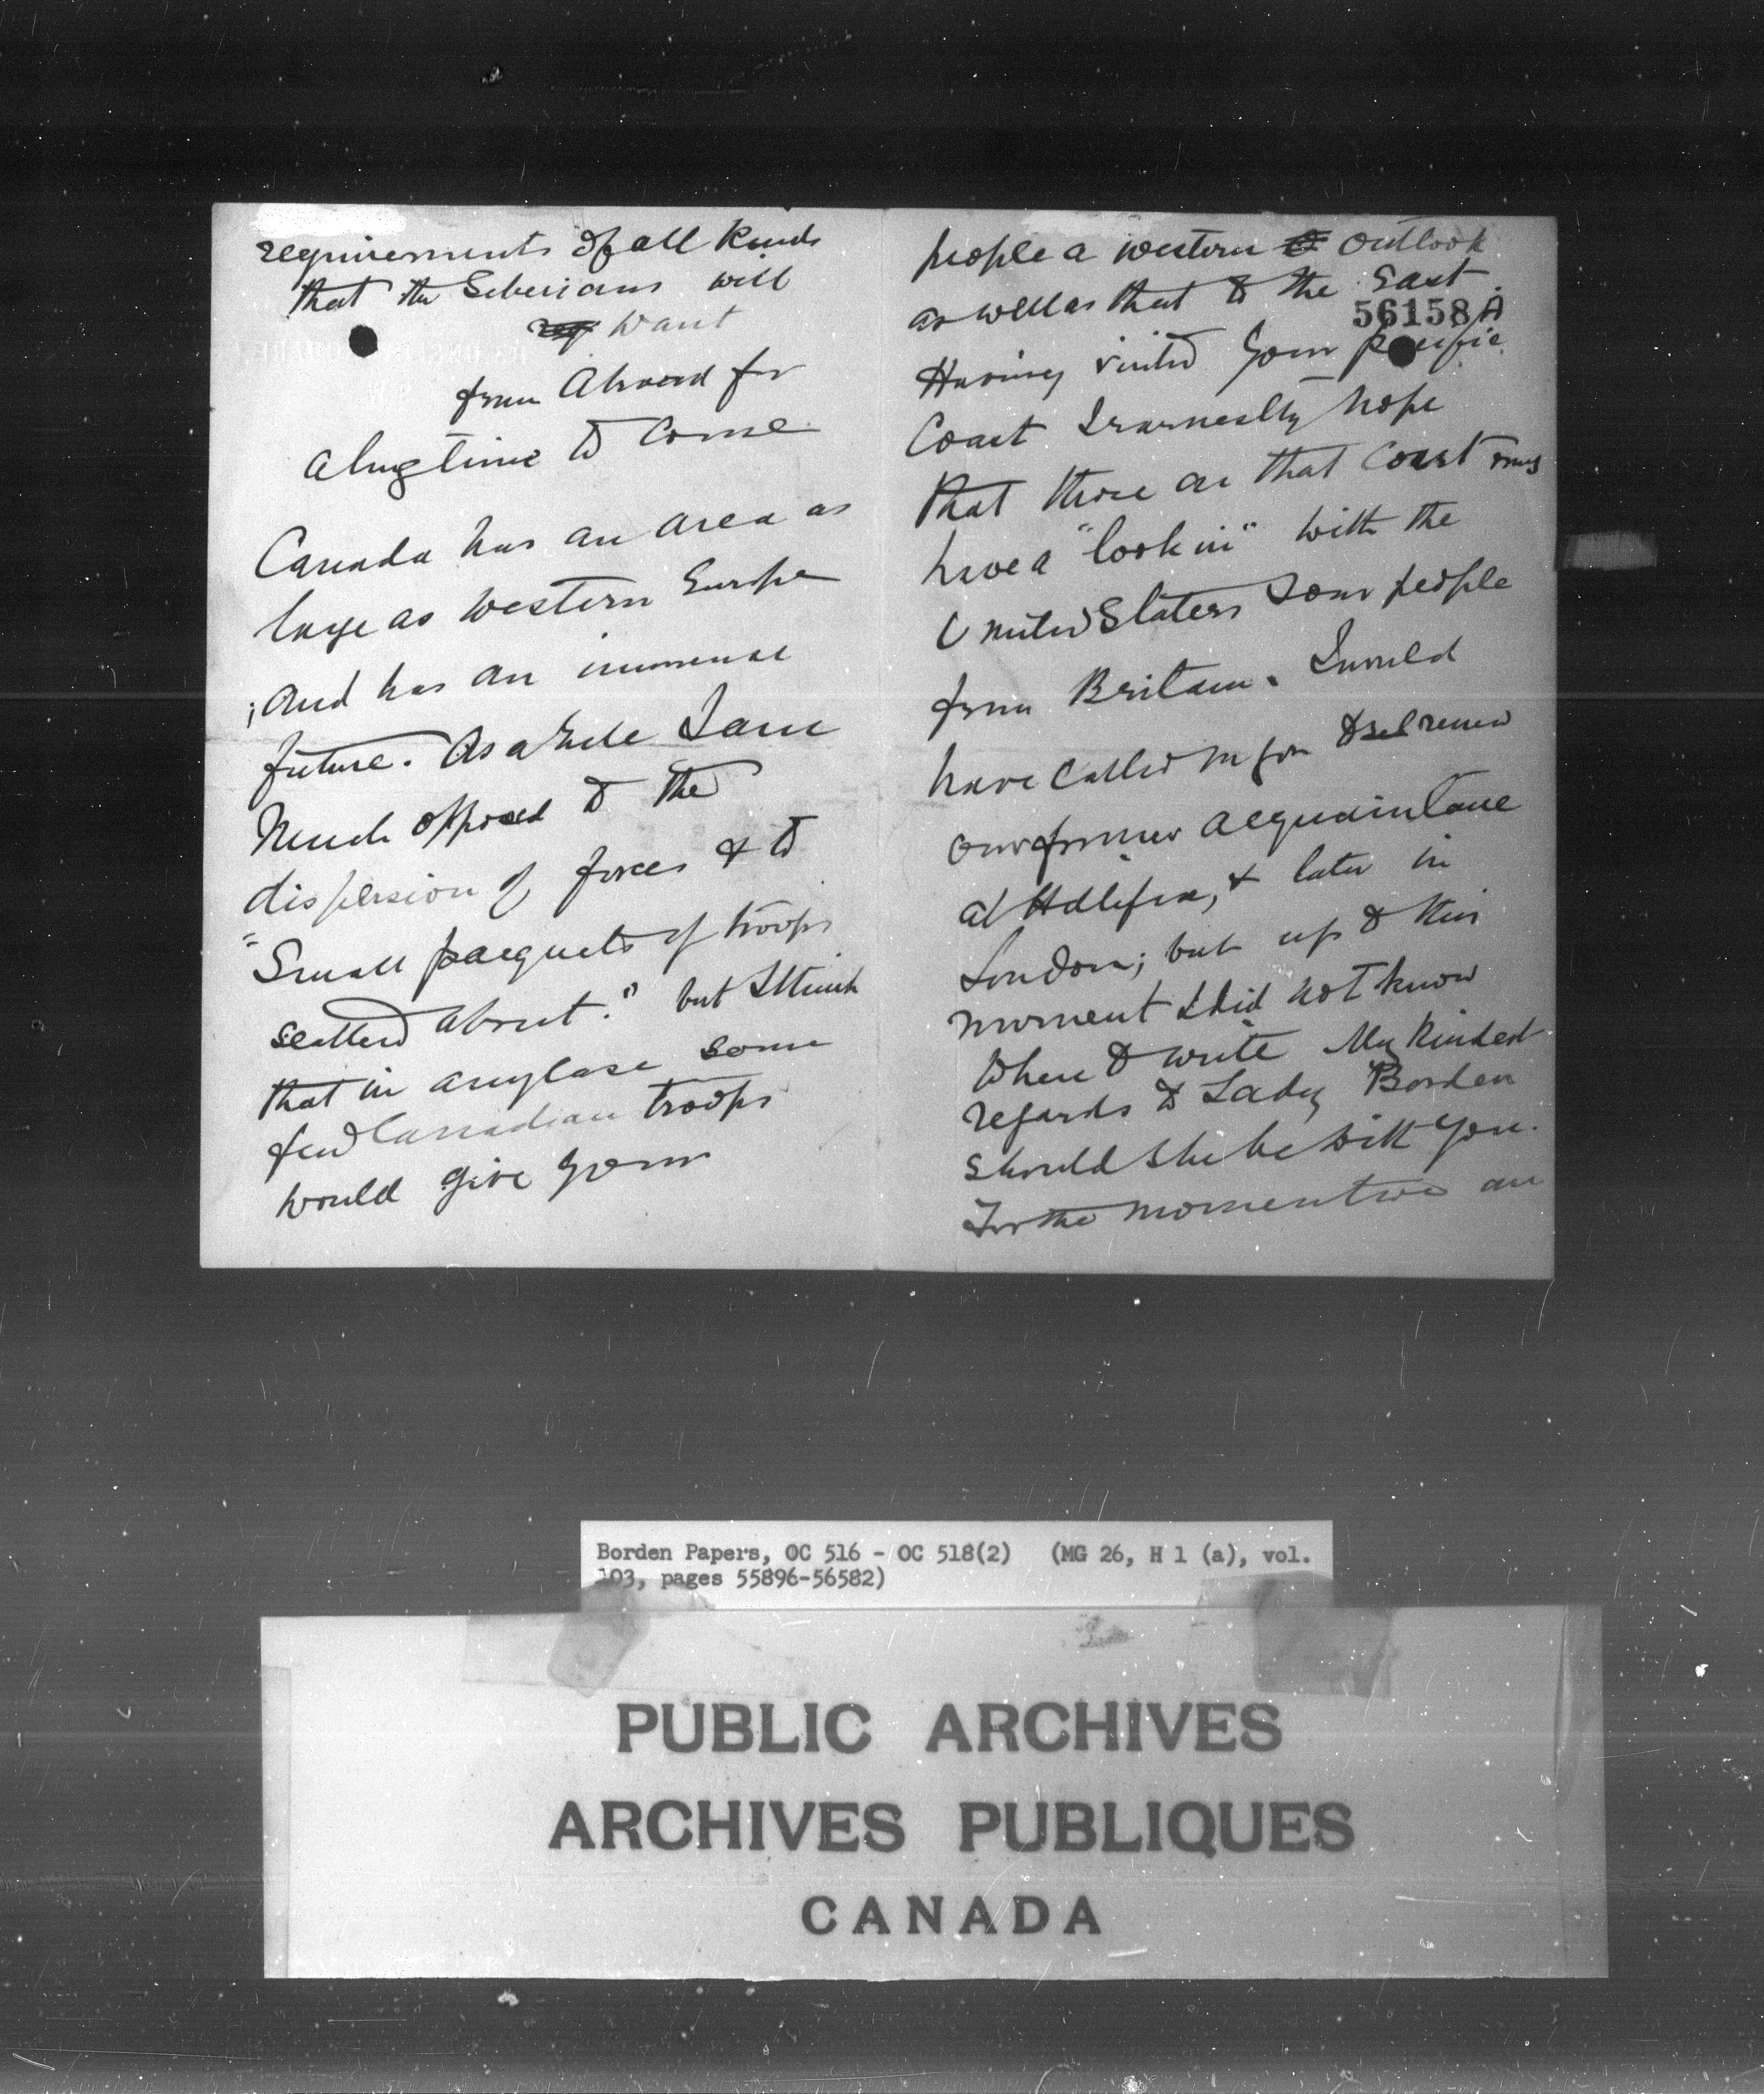 requirements of all kinds
that the Siberians will
want
from Abroad for
a long time to come
Canada has an area as
large as western Europe
and has an immense
future. As a rule I am
Much opposed to the
dispersion of forces & to
"Small pacquets of troops
scatterd about." but I think
that in any case some
few Canadian troops
would give your
people a western outlook
as well as that to the East.
56158 A
Having visited your pacific
Coast I earnestly hope
that those on that Coast may
have a "look in" with the
United States & our people
from Britain. I would
have called on you to renew
our former acquaintance
at Halifax, & later in
London; but up to this
moment I did not know
where to write My kindest
regards to Lady Borden
should she be with you.
For the moment we are
Borden Papers, OC 516 - OC 518(2) (MG 26, H 1 (a), vol.
103, pages 55896-56582)
PUBLIC ARCHIVES
ARCHIVES PUBLIQUES
CANADA